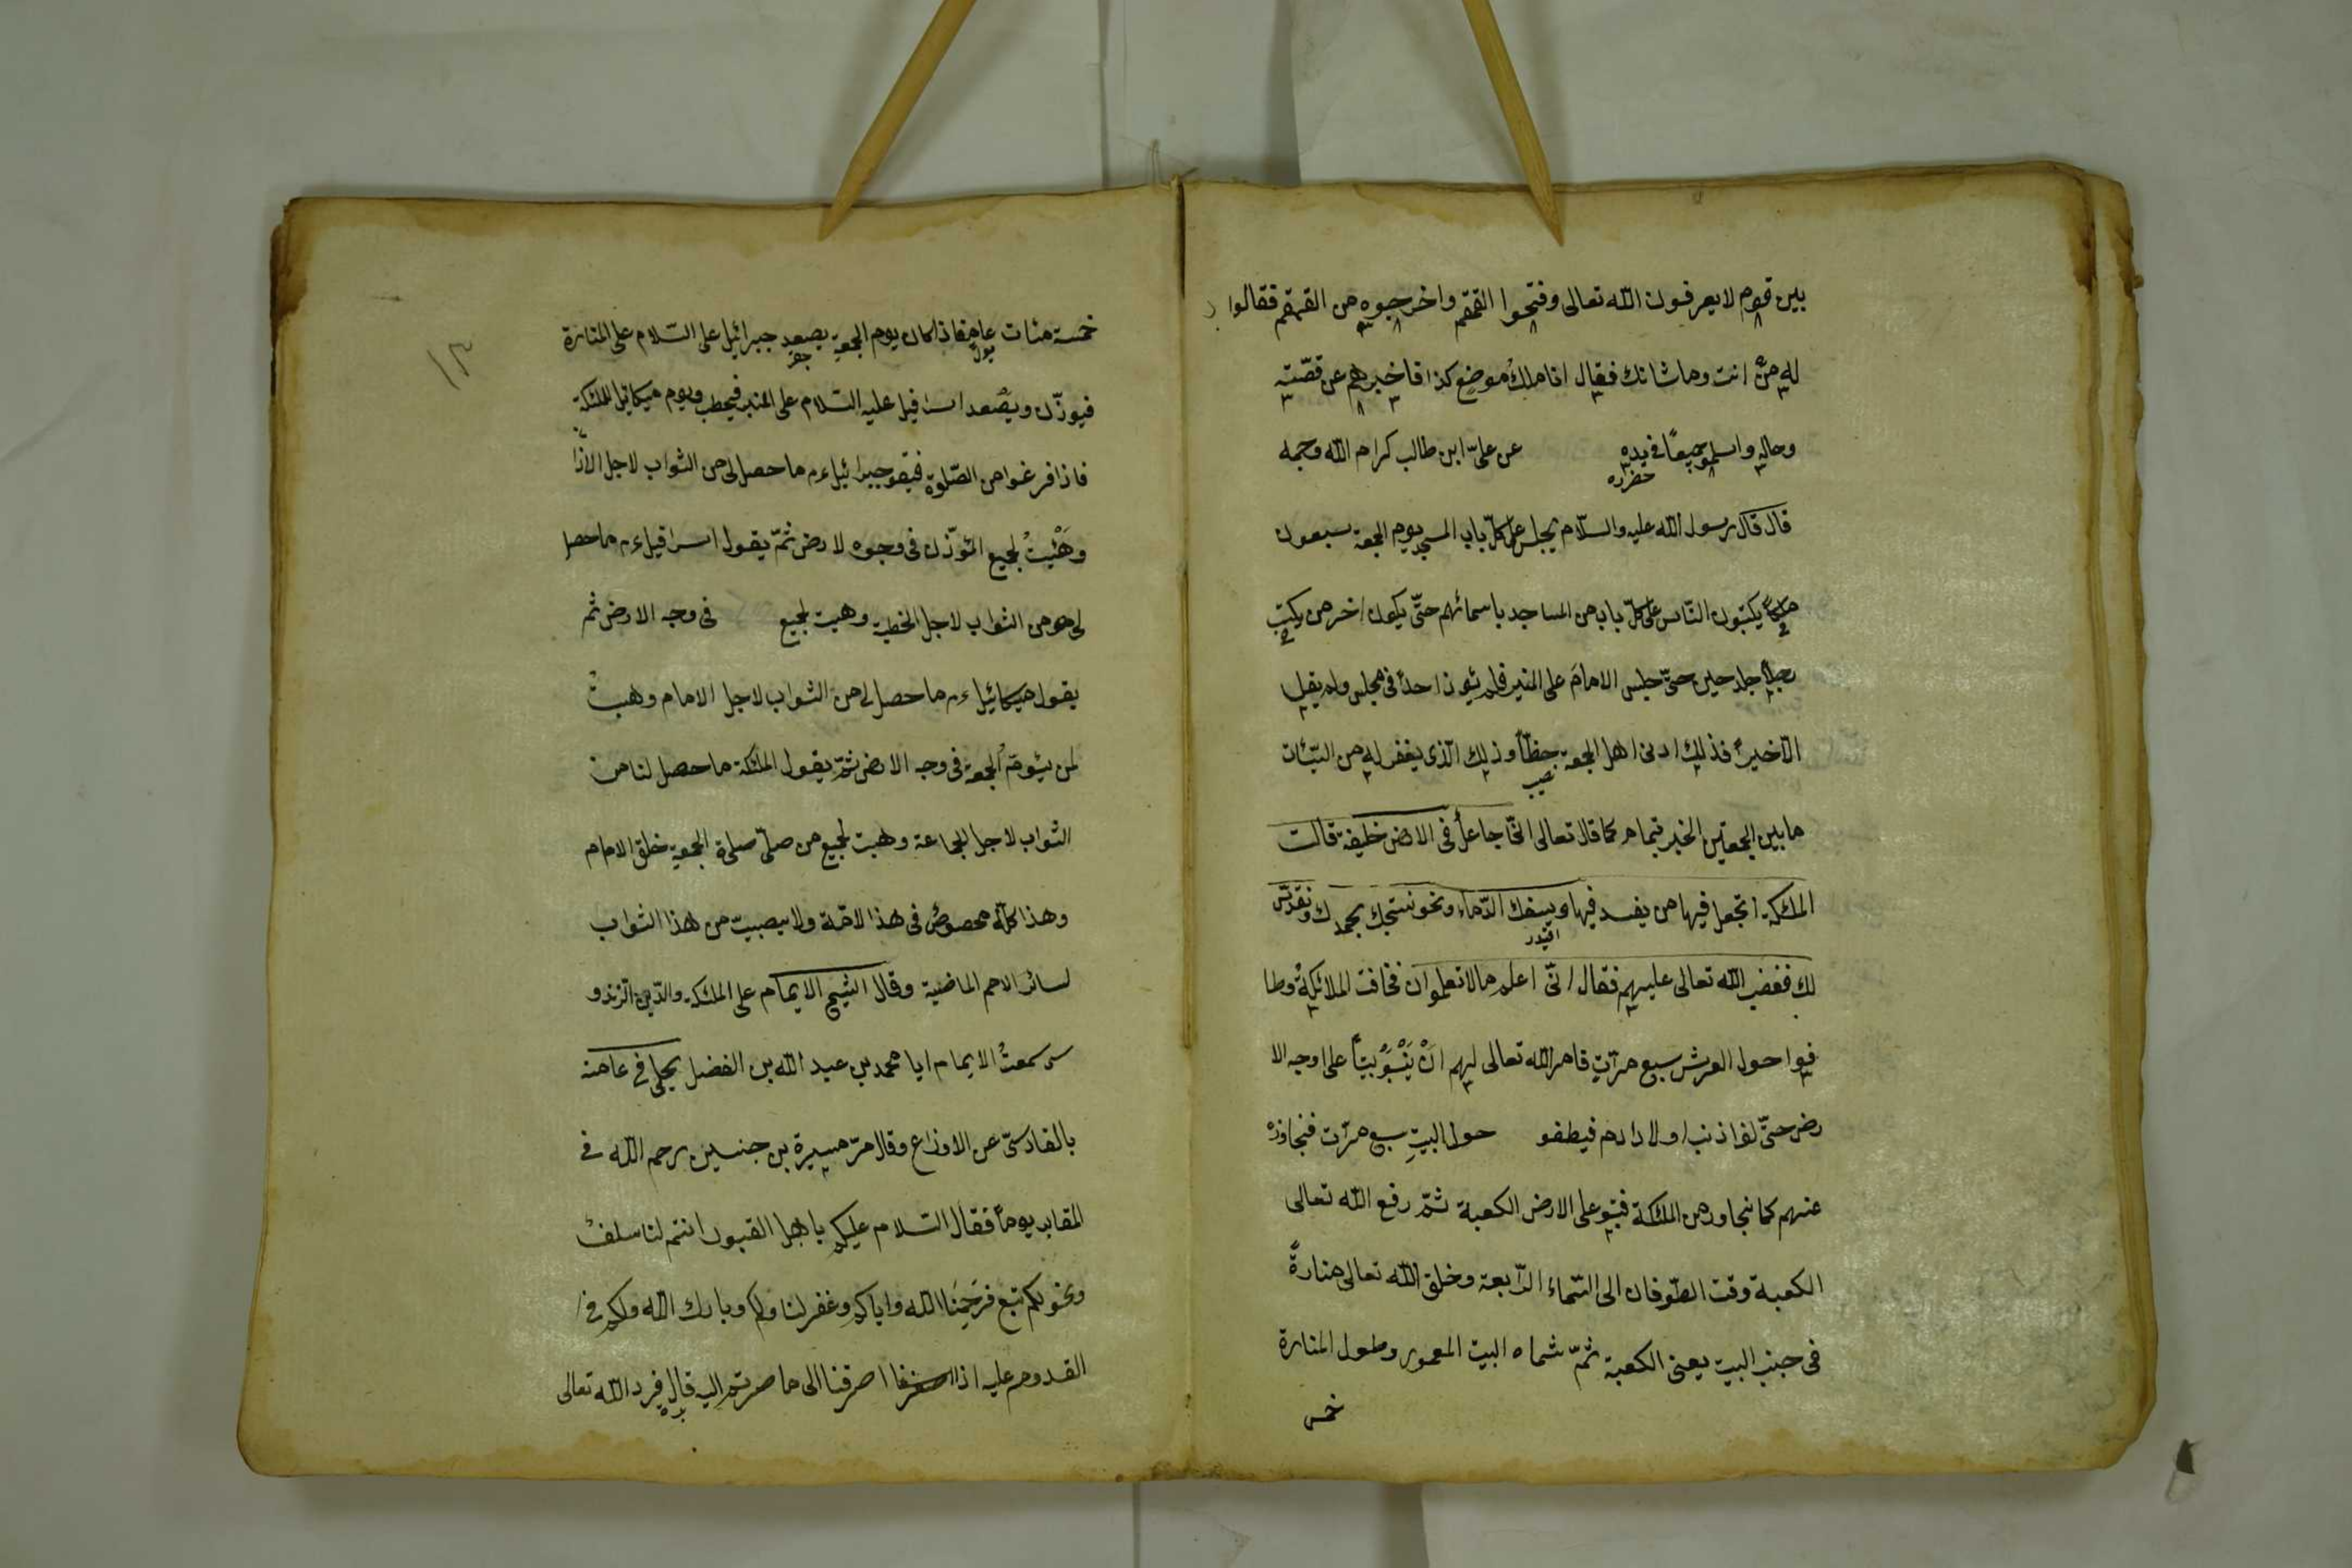 بين قوم لا يعرفون الله تعالى وفتحوا القمقم واخرجوه من القمقم فقالوا
له من انت وما شانك فقال انا ملك موضع كذا فاخبرهم عن قصّته
وحاله واسلموا جميعًا في يده عن علىّ ابن طالب كرام الله وجهه
حضرنده
قال قال رسول الله عليه والسّلام يجلس على كلّ باب المسجد يوم الجمعة سبعون
ملكًا يكتبون النّاس على كلّ باب من المساجد باسمائهم حتّى يكون اخر من يكتب
رجلًا جلد حين حتّى جلس الامامَ على المنبر فلم يئوذ احدًا فى مجلس ولم يقل
الّاخيرً فذلك ادنى اهل الجمعة حظًّا وذلك الّذى يغفر له من السّيّئات
نصيب
ما بين الجمعتين الخبر بتمامه كما قال تعالى انّى جاعل فى الارض خليفة قالت
الملئكة اتجعل فيها من يفسد فيها ويسفك الدّماء ونحو نسبّحك بحمدك ونقدّس
لك فغضب الله تعالى عليهم فقال انّى اعلم ما لا تعلموان فخافت الملائكةُ وطا
فوا حول العرش سبع مرّاتٍ فامر الله تعالى لهم انْ يَبْنُوَ بيتًا على اوجه الا
رض حتّى لفا ذنب اولاد ادم فيطفو حول البيتِ سبع مرّات فنجاوزه
عنهم كما نجاوز من الملئكة فبنو على الارض الكعبة ثمّ رفع الله تعالى
الكعبة وقت الطّوفان الى السّماء الرّابعة وخلق الله تعالى منارةً
فى جنب البيت يعنى الكعبة ثمّ سماه البيت المعمور وطول المنارة
خمس
١٣
خمسة مئات عام فاذا كان يوم الجمعة يصعد جبرائيل على السّلام على المنارة
فيوذّن ويصْعد اسرافيل عليه السّلام على المنبر فيخطب ويوم ميكائيل الملئكة
فاذا فرغوا من الصّلوة فيقو جبرائيل عم ما حصل لى من الثواب لاجل الاذا
وهَبْتُ لجميع المئوذّن فى وجوه لارض ثمّ يقول اسرافيل عم ما حصل
لى هو من الثواب لاجل الخطبة وهبت لجميع فى وجه الارض ثم
يقول ميكائيل عم ما حصل لى من الثواب لاجل الامام وهبتُ
لمن يئومّ الجمعة فى وجه الارض ثمّ يقول الملئكة ما حصل لنا من
الثواب لاجل الجماعة وهبت لجميع من صلّى صلوة الجمعة خلق الامام
وهذا كلّه محصوصٌ فى هذا لامّة ولا يصيبّ من هذا الثواب
لسائر الامم الماضية وقال الشيح الايمام على الملئكة والدّين الزندو
سى سمعتُ الايمام ايا محمد بن عبد الله بن الفضل يحلى فى عامنه
بالفادسىّ عن الاوزاع وقال مرّ ميسرة بن جنسين رحم الله فى
المقابر يومًا فقال السّلام عليكم يا اهل القبور انتم لنا سلفٌ
ونحو لكم تبع فرحَمِنَا الله واياكم وغفر لنا ولكم وبارك الله ولكم فى
القدوم عليه اذا صرفنا الى ما صرتم اليه قال فرد الله تعالى